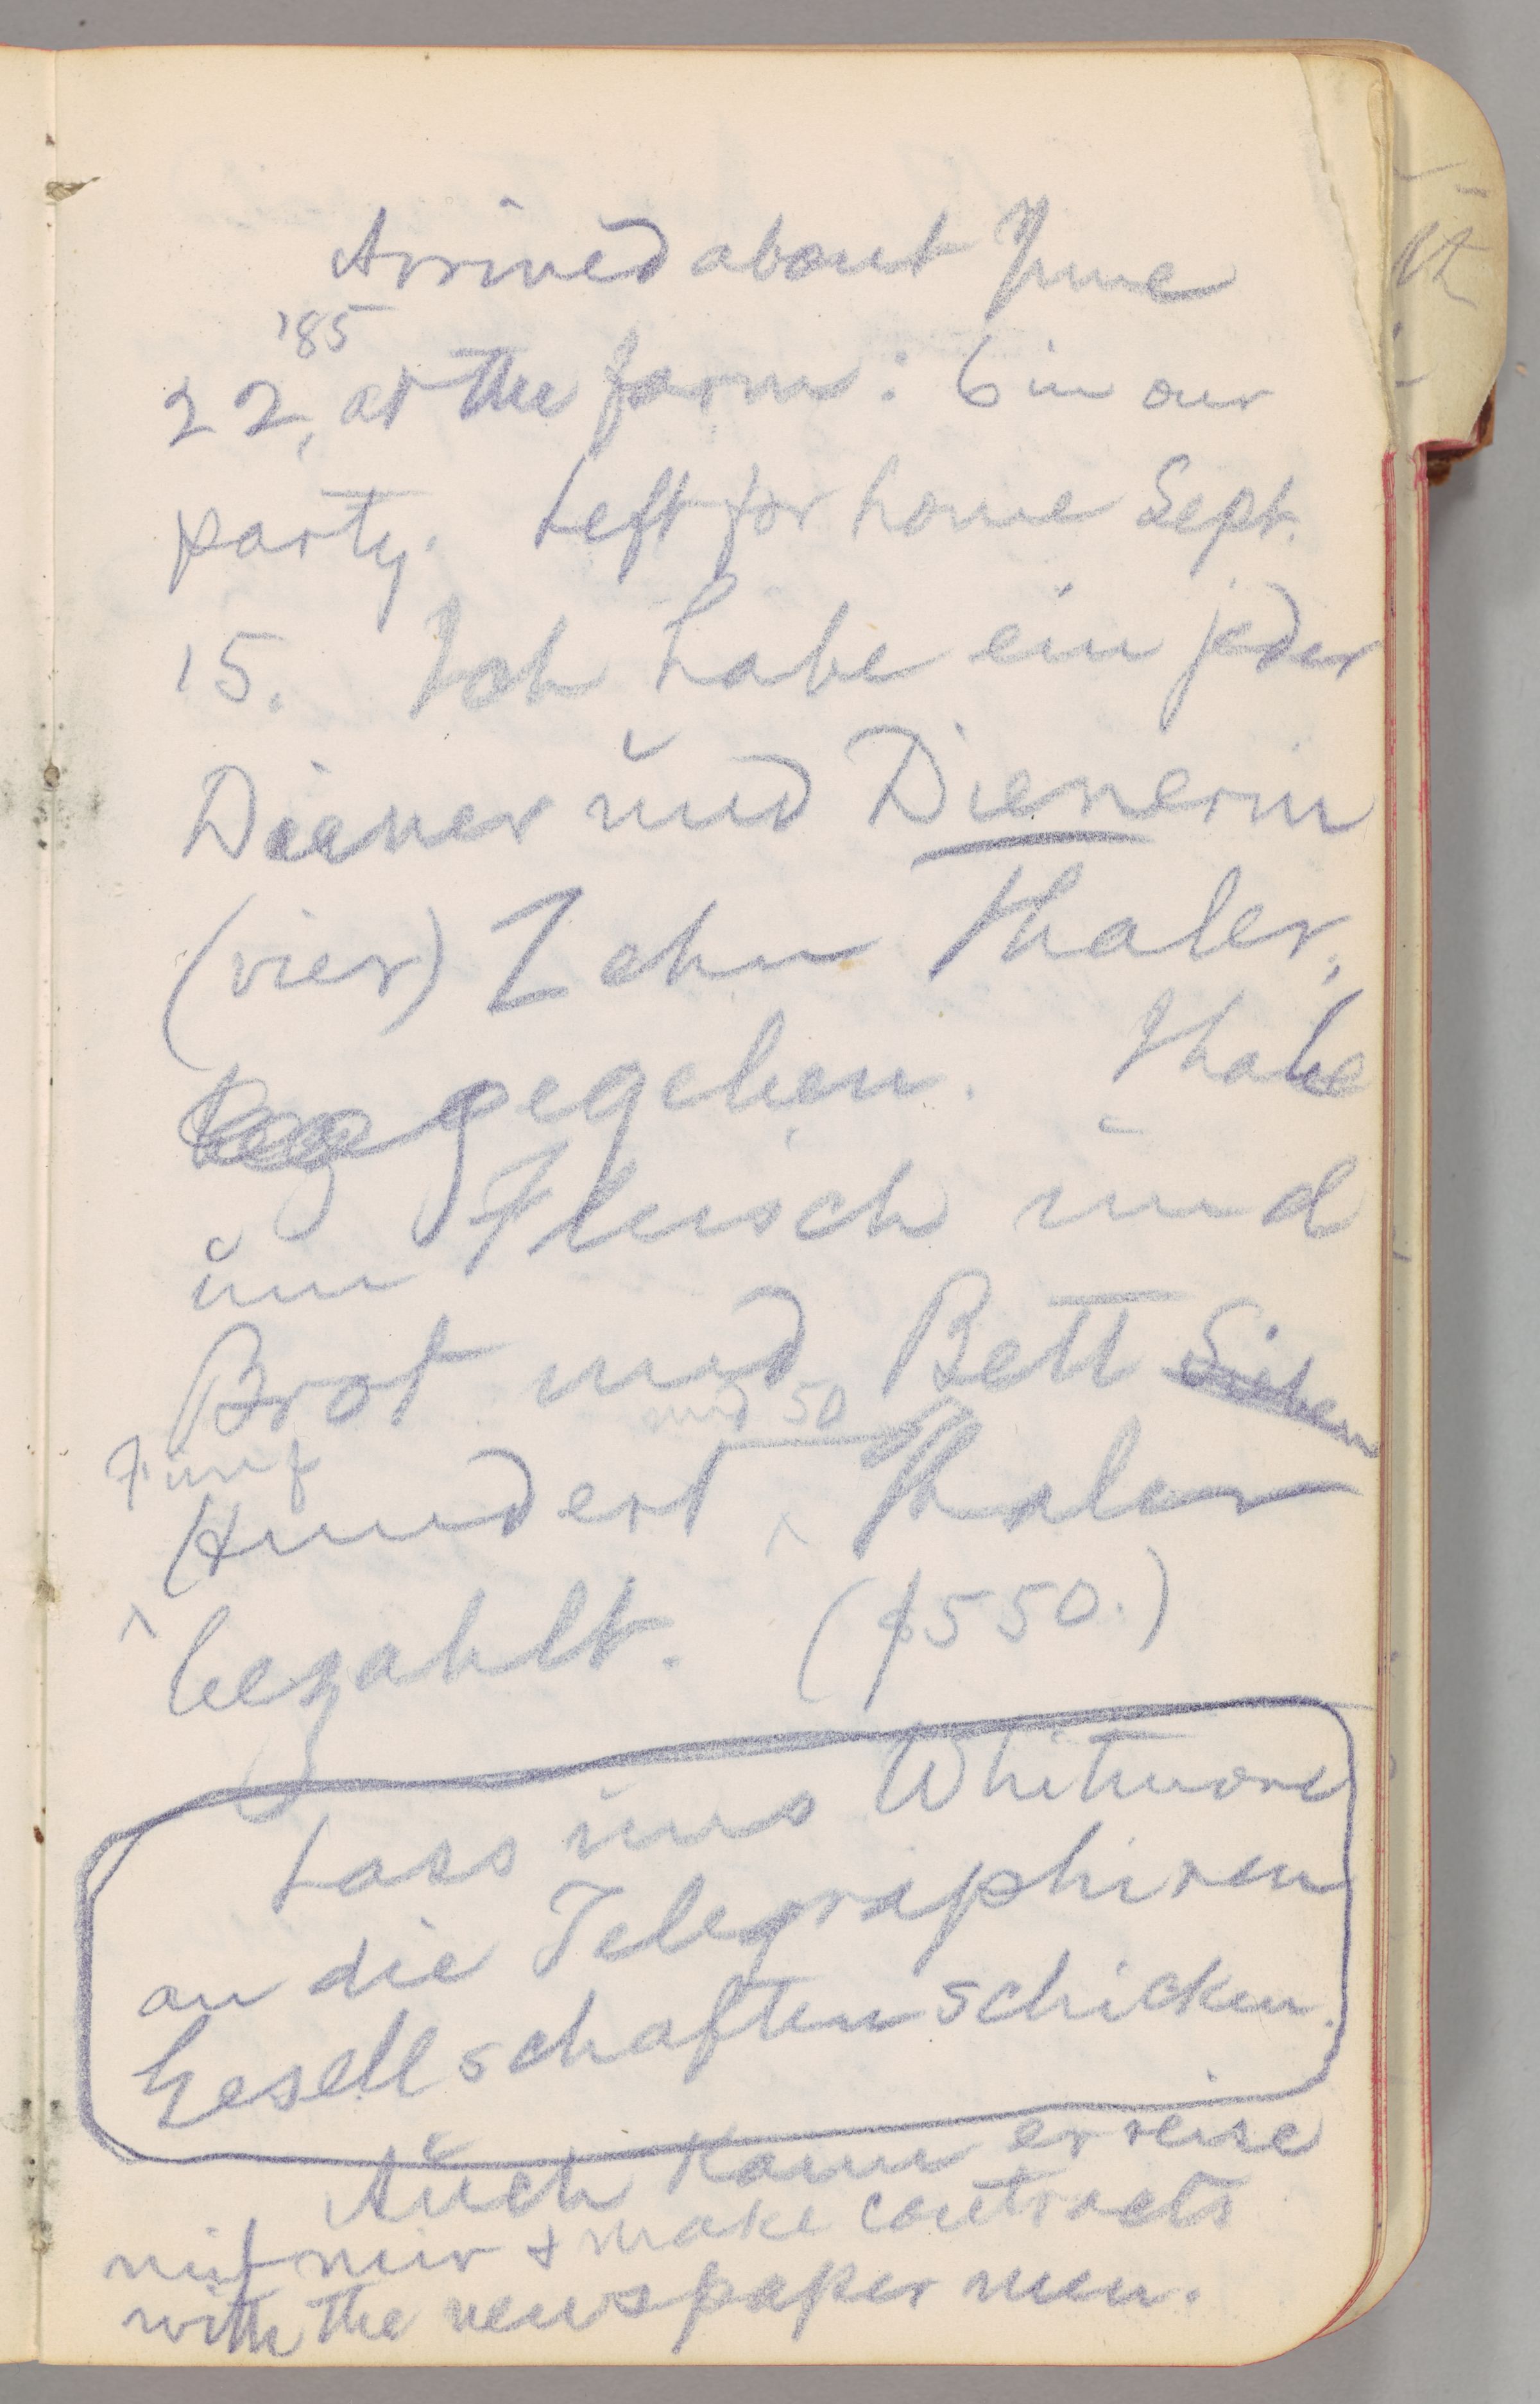 Arrived about June
'85
22, at the farm: 6 in our
party. Left for home Sept.
15. Ich habe ein jeder
Diener und Dienerin
(vier) Zehn Thaler,
gegeben. I habe
um Fleisch und
Brot und Bett Sieben
Fünf und 50
Hundert ^ Thaler
^ bezahlt. ($550.)
Lass uns Whitmore
an die Telegraphiren
Gesellschaften schicken.
Auch kann er reise
mit mir & make contracts
with the newspaper men.